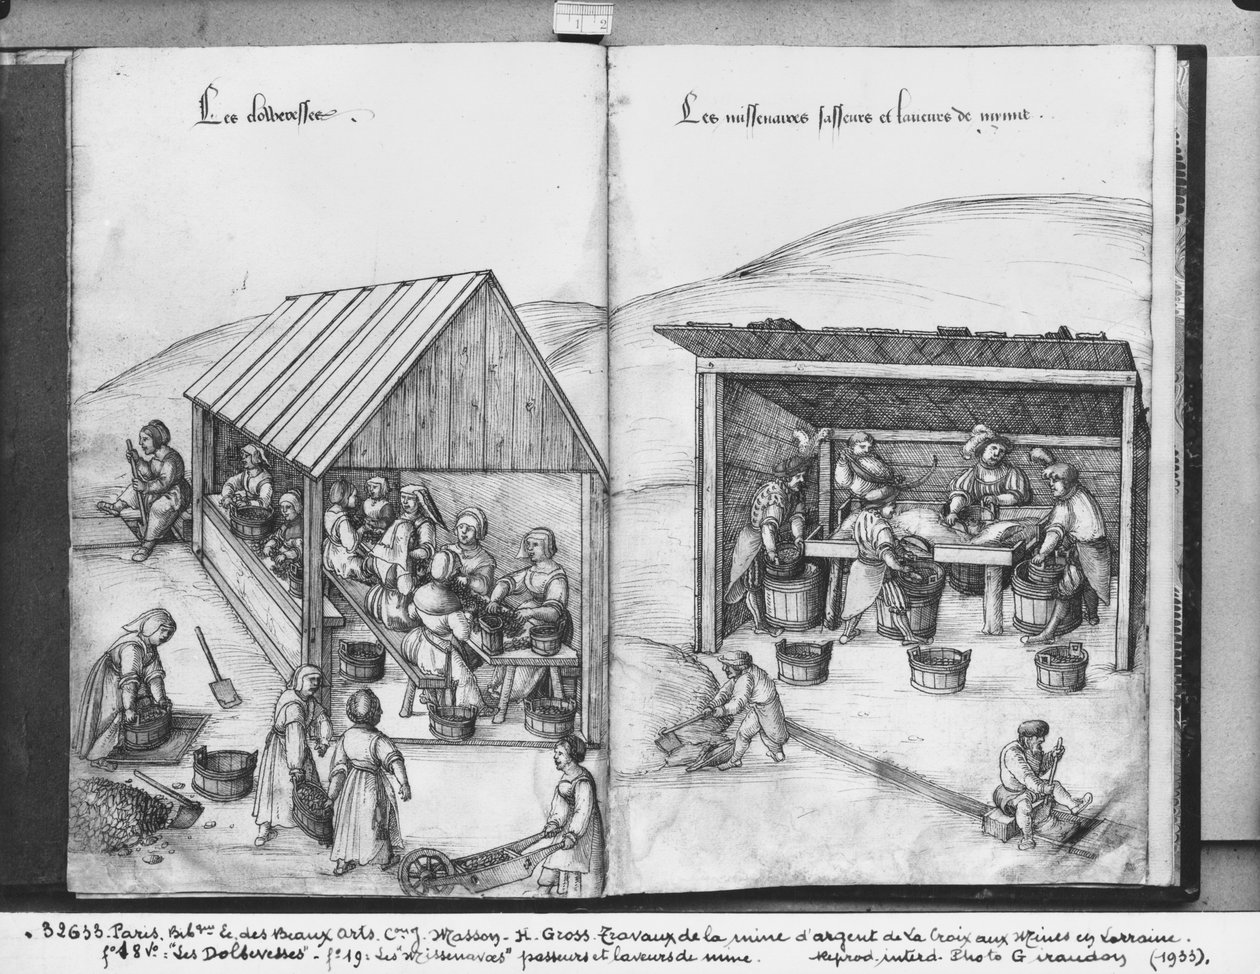 1 2
Les dolberesses.
Les missenaires sasseurs et laveurs de mynne.
. 32633. Paris. Bibque Ec. des Beaux Arts. Cong. Masson - H. Gross. Travaux de la mine d'argent de La Croix aux Mines en Lorraine.
fo 18 vo: "Les Dolberesses" - fo 19: Les "Missenaires" passeurs et laveurs de mine. Reprod. interd. Photo Giraudon (1933).